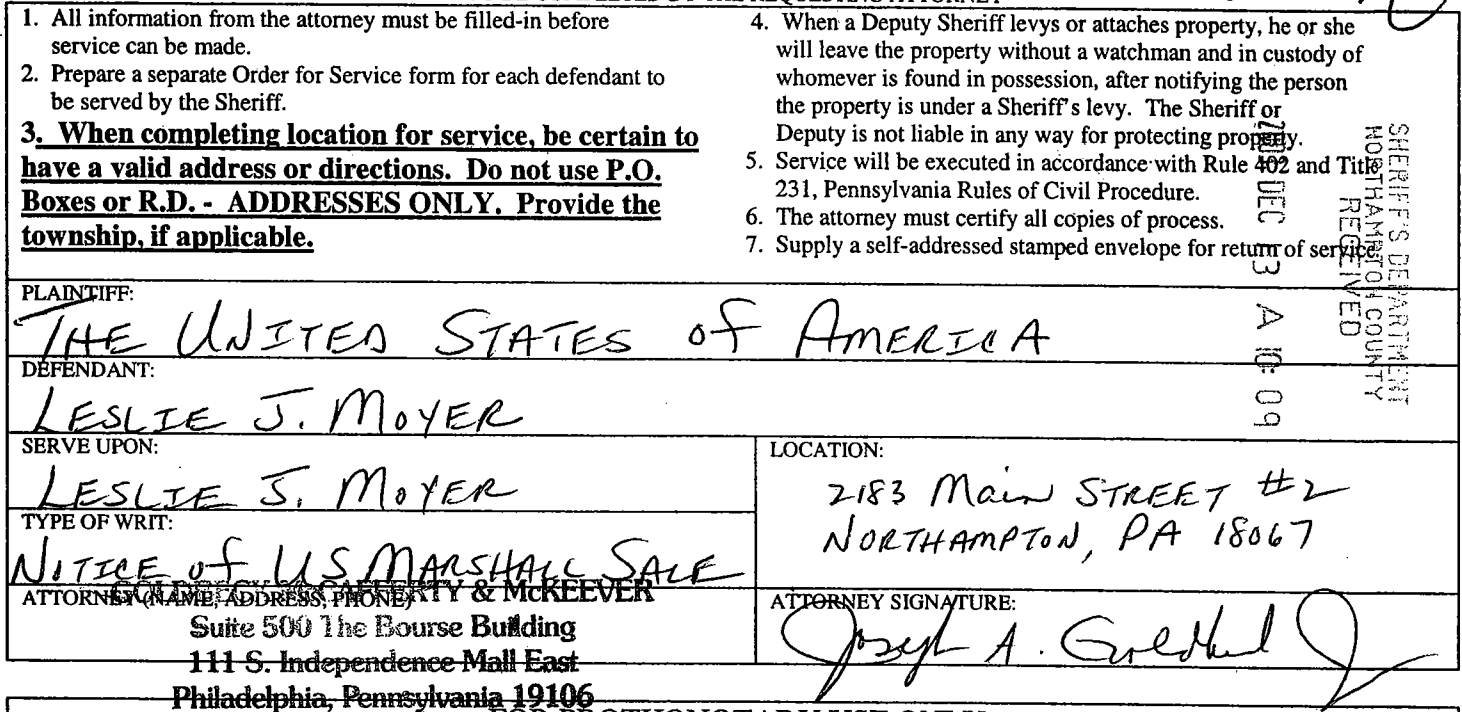 1. All information from the attorney must be filled-in before
service can be made.
2. Prepare a separate Order for Service form for each defendant to
be served by the Sheriff.
3. When completing location for service, be certain to
have a valid address or directions. Do not use P.O.
Boxes or R.D. - ADDRESSES ONLY. Provide the
township, if applicable.
4. When a Deputy Sheriff levys or attaches property, he or she
will leave the property without a watchman and in custody of
whomever is found in possession, after notifying the person
the property is under a Sheriff's levy. The Sheriff or
Deputy is not liable in any way for protecting property.
5. Service will be executed in accordance with Rule 402 and Title
231, Pennsylvania Rules of Civil Procedure.
6. The attorney must certify all copies of process.
7. Supply a self-addressed stamped envelope for return of service.
SHERIFF'S DEPARTMENT
NORTHAMPTON COUNTY
RECEIVED
DEC 13 A 10: 09
PLAINTIFF:
THE UNITED STATES of AMERICA
DEFENDANT:
LESLIE J. MOYER
SERVE UPON:
LESLIE J. MOYER
LOCATION:
2183 Main STREET #2
NORTHAMPTON, PA 18067
TYPE OF WRIT:
NOTICE of US MARSHALL SALE
ATTORNEY (NAME, ADDRESS, PHONE)
& McKEEVER
Suite 500 The Bourse Building
111 S. Independence Mall East
Philadelphia, Pennsylvania 19106
ATTORNEY SIGNATURE:
Joseph A.